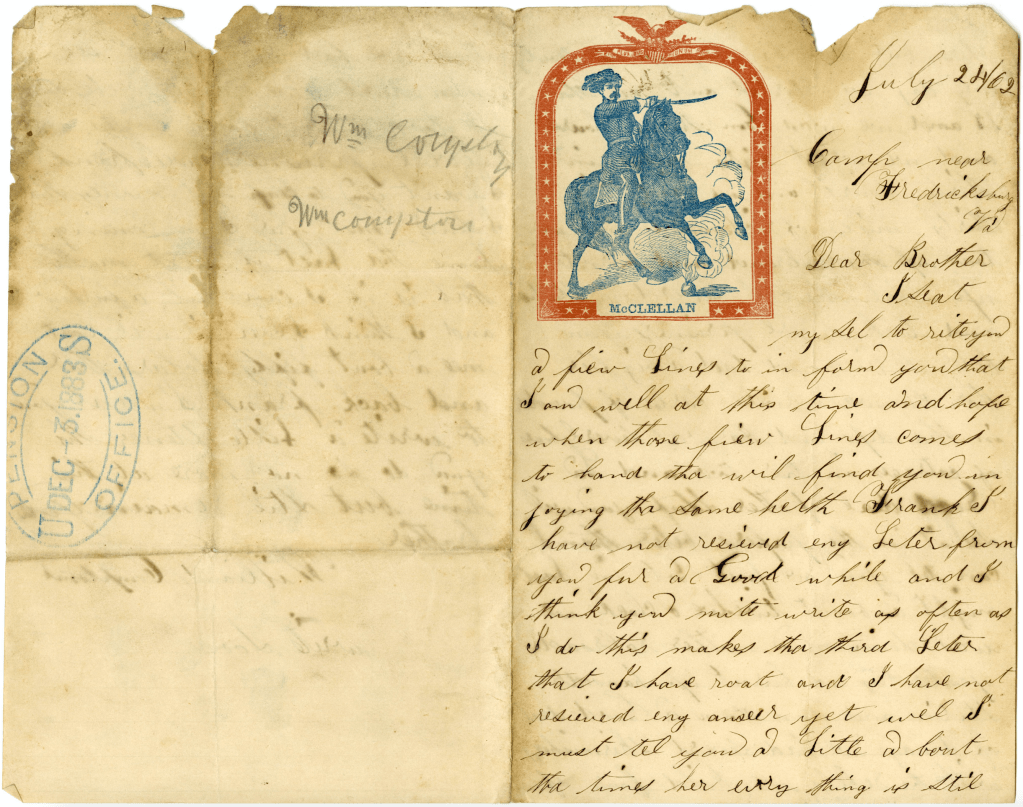 Wm Compton
Wm Compton
PENSION OFFICE.
U DEC 3 1883 S
McCLELLAN
July 24/62
Camp near
Fredricksburg
Va
Dear Brother
I seat
my self to rite you
a fiew Lines to in form you that
I am well at this time and hope
when those fiew Lines comes
to hand tha wil find you in
joying tha same helth Frank I
have not resieved eny Leter from
you fur a Good while and I
think you mitt write as often as
I do this makes tha third Leter
that I have roat and I have not
resieved eny anseer yet wel I
must tel you a Little a bout
tha times her evry thing is stil